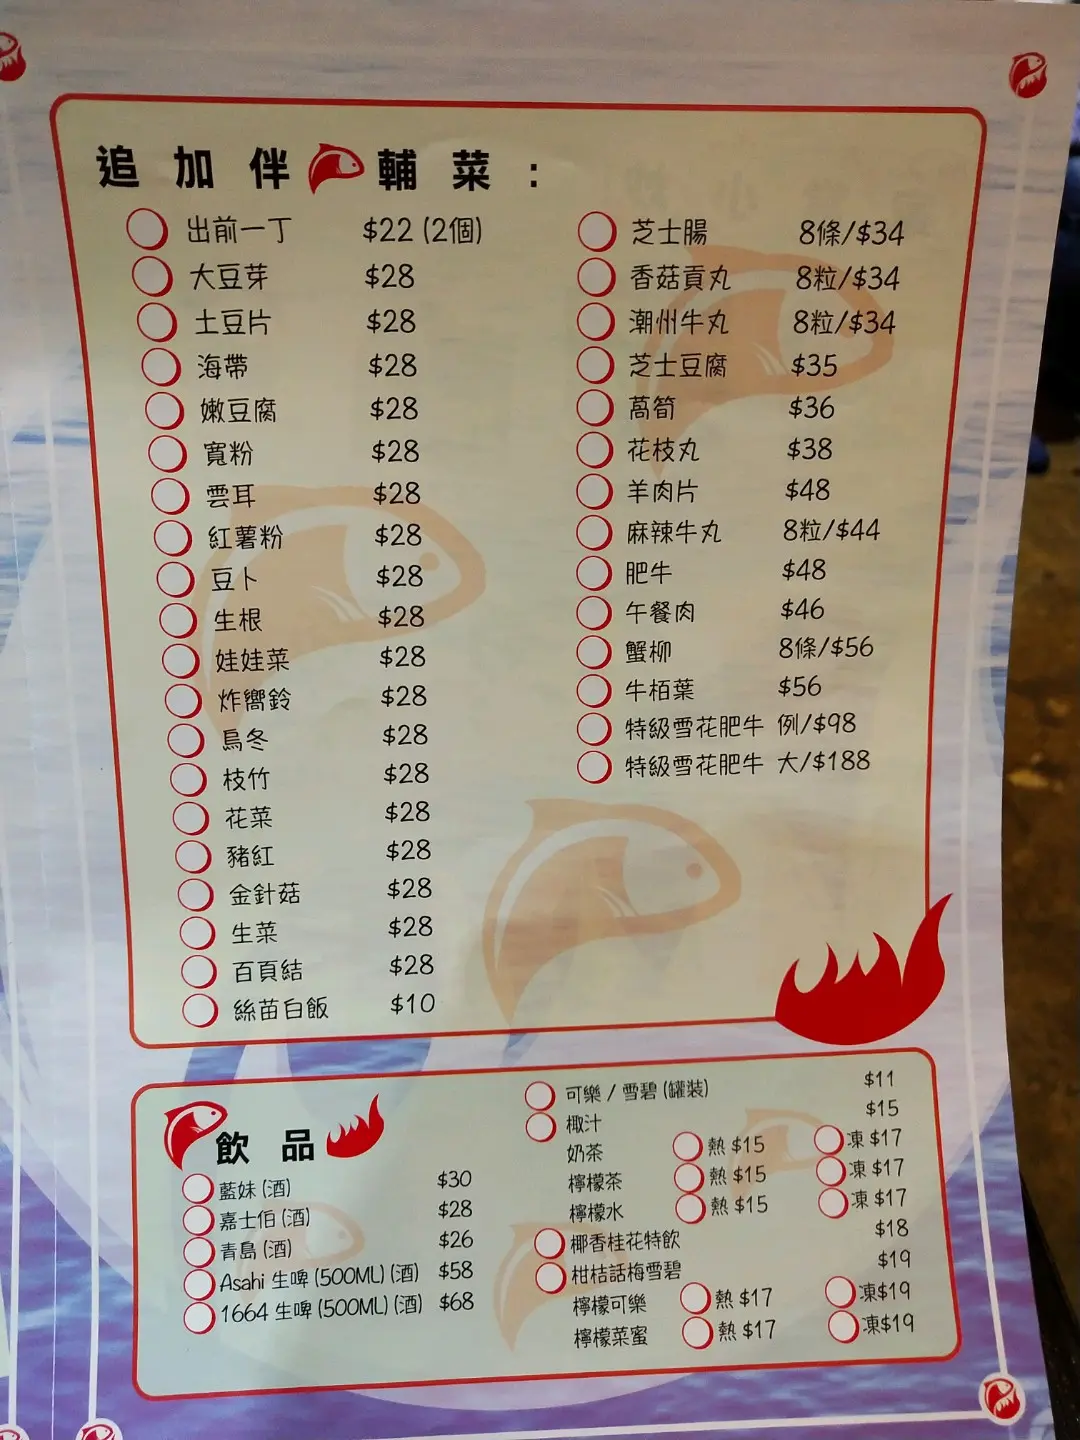 追加伴輔菜：
出前一丁 $22 (2個)
大豆芽 $28
土豆片 $28
海帶 $28
嫩豆腐 $28
寬粉 $28
雲耳 $28
紅薯粉 $28
豆卜 $28
生根 $28
娃娃菜 $28
炸嚮鈴 $28
烏冬 $28
枝竹 $28
花菜 $28
豬紅 $28
金針菇 $28
生菜 $28
百頁結 $28
絲苗白飯 $10
芝士腸 8條/$34
香菇貢丸 8粒/$34
潮州牛丸 8粒/$34
芝士豆腐 $35
萵筍 $36
花枝丸 $38
羊肉片 $48
麻辣牛丸 8粒/$44
肥牛 $48
午餐肉 $46
蟹柳 8條/$56
牛栢葉 $56
特級雪花肥牛 例/$98
特級雪花肥牛 大/$188
飲品
藍妹 (酒) $30
嘉士伯 (酒) $28
青島 (酒) $26
Asahi 生啤 (500ML) (酒) $58
1664 生啤 (500ML) (酒) $68
可樂 / 雪碧 (罐裝) $11
椰汁 $15
奶茶 熱 $15 凍 $17
檸檬茶 熱 $15 凍 $17
檸檬水 熱 $15 凍 $17
椰香桂花特飲 $18
柑桔話梅雪碧 $19
檸檬可樂 熱 $17 凍$19
檸檬菜蜜 熱 $17 凍$19